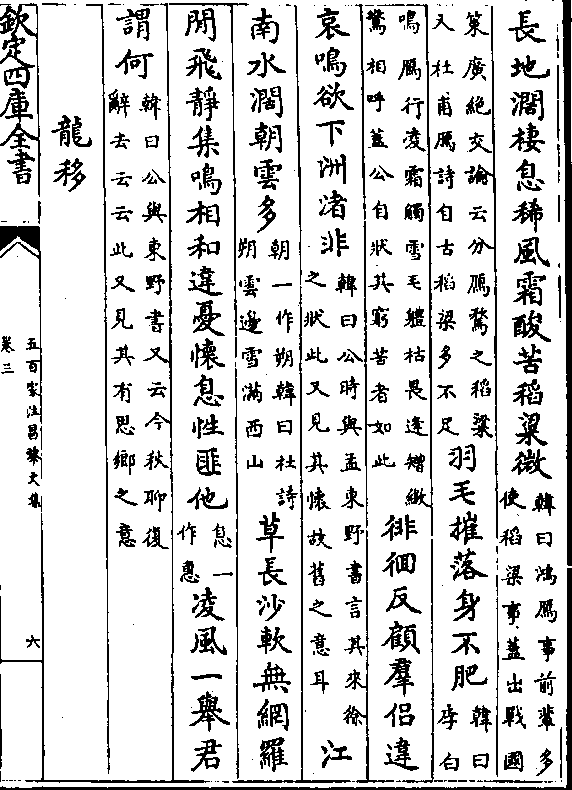 長地濶棲息稀風霜酸苦稻粱微韓曰鴻鴈事前輩多使稻粱事蓋出戰國
策廣絶交論云分鴈鶩之稻粱又杜甫鴈詩自古稻粱多不足羽毛摧落身不肥韓曰李白
鳴鴈行凌霜觸雪毛體枯畏逢矰繳驚相呼蓋公自狀其窮苦者如此徘徊反顧羣侶違
哀鳴欲下洲渚非韓曰公時與孟東野書言其來徐之狀此又見其懷故舊之意耳江
南水濶朝雲多朝一作朔韓曰杜詩朔雲邊雪滿西山草長沙軟無網羅
閒飛靜集鳴相和違憂懷息性匪他息一作惠凌風一舉君
謂何韓曰公與東野書又云今秋聊復辭去云云此又見其有思鄉之意
龍移
欽定四庫全書
五百家注昌黎文集
卷三
六